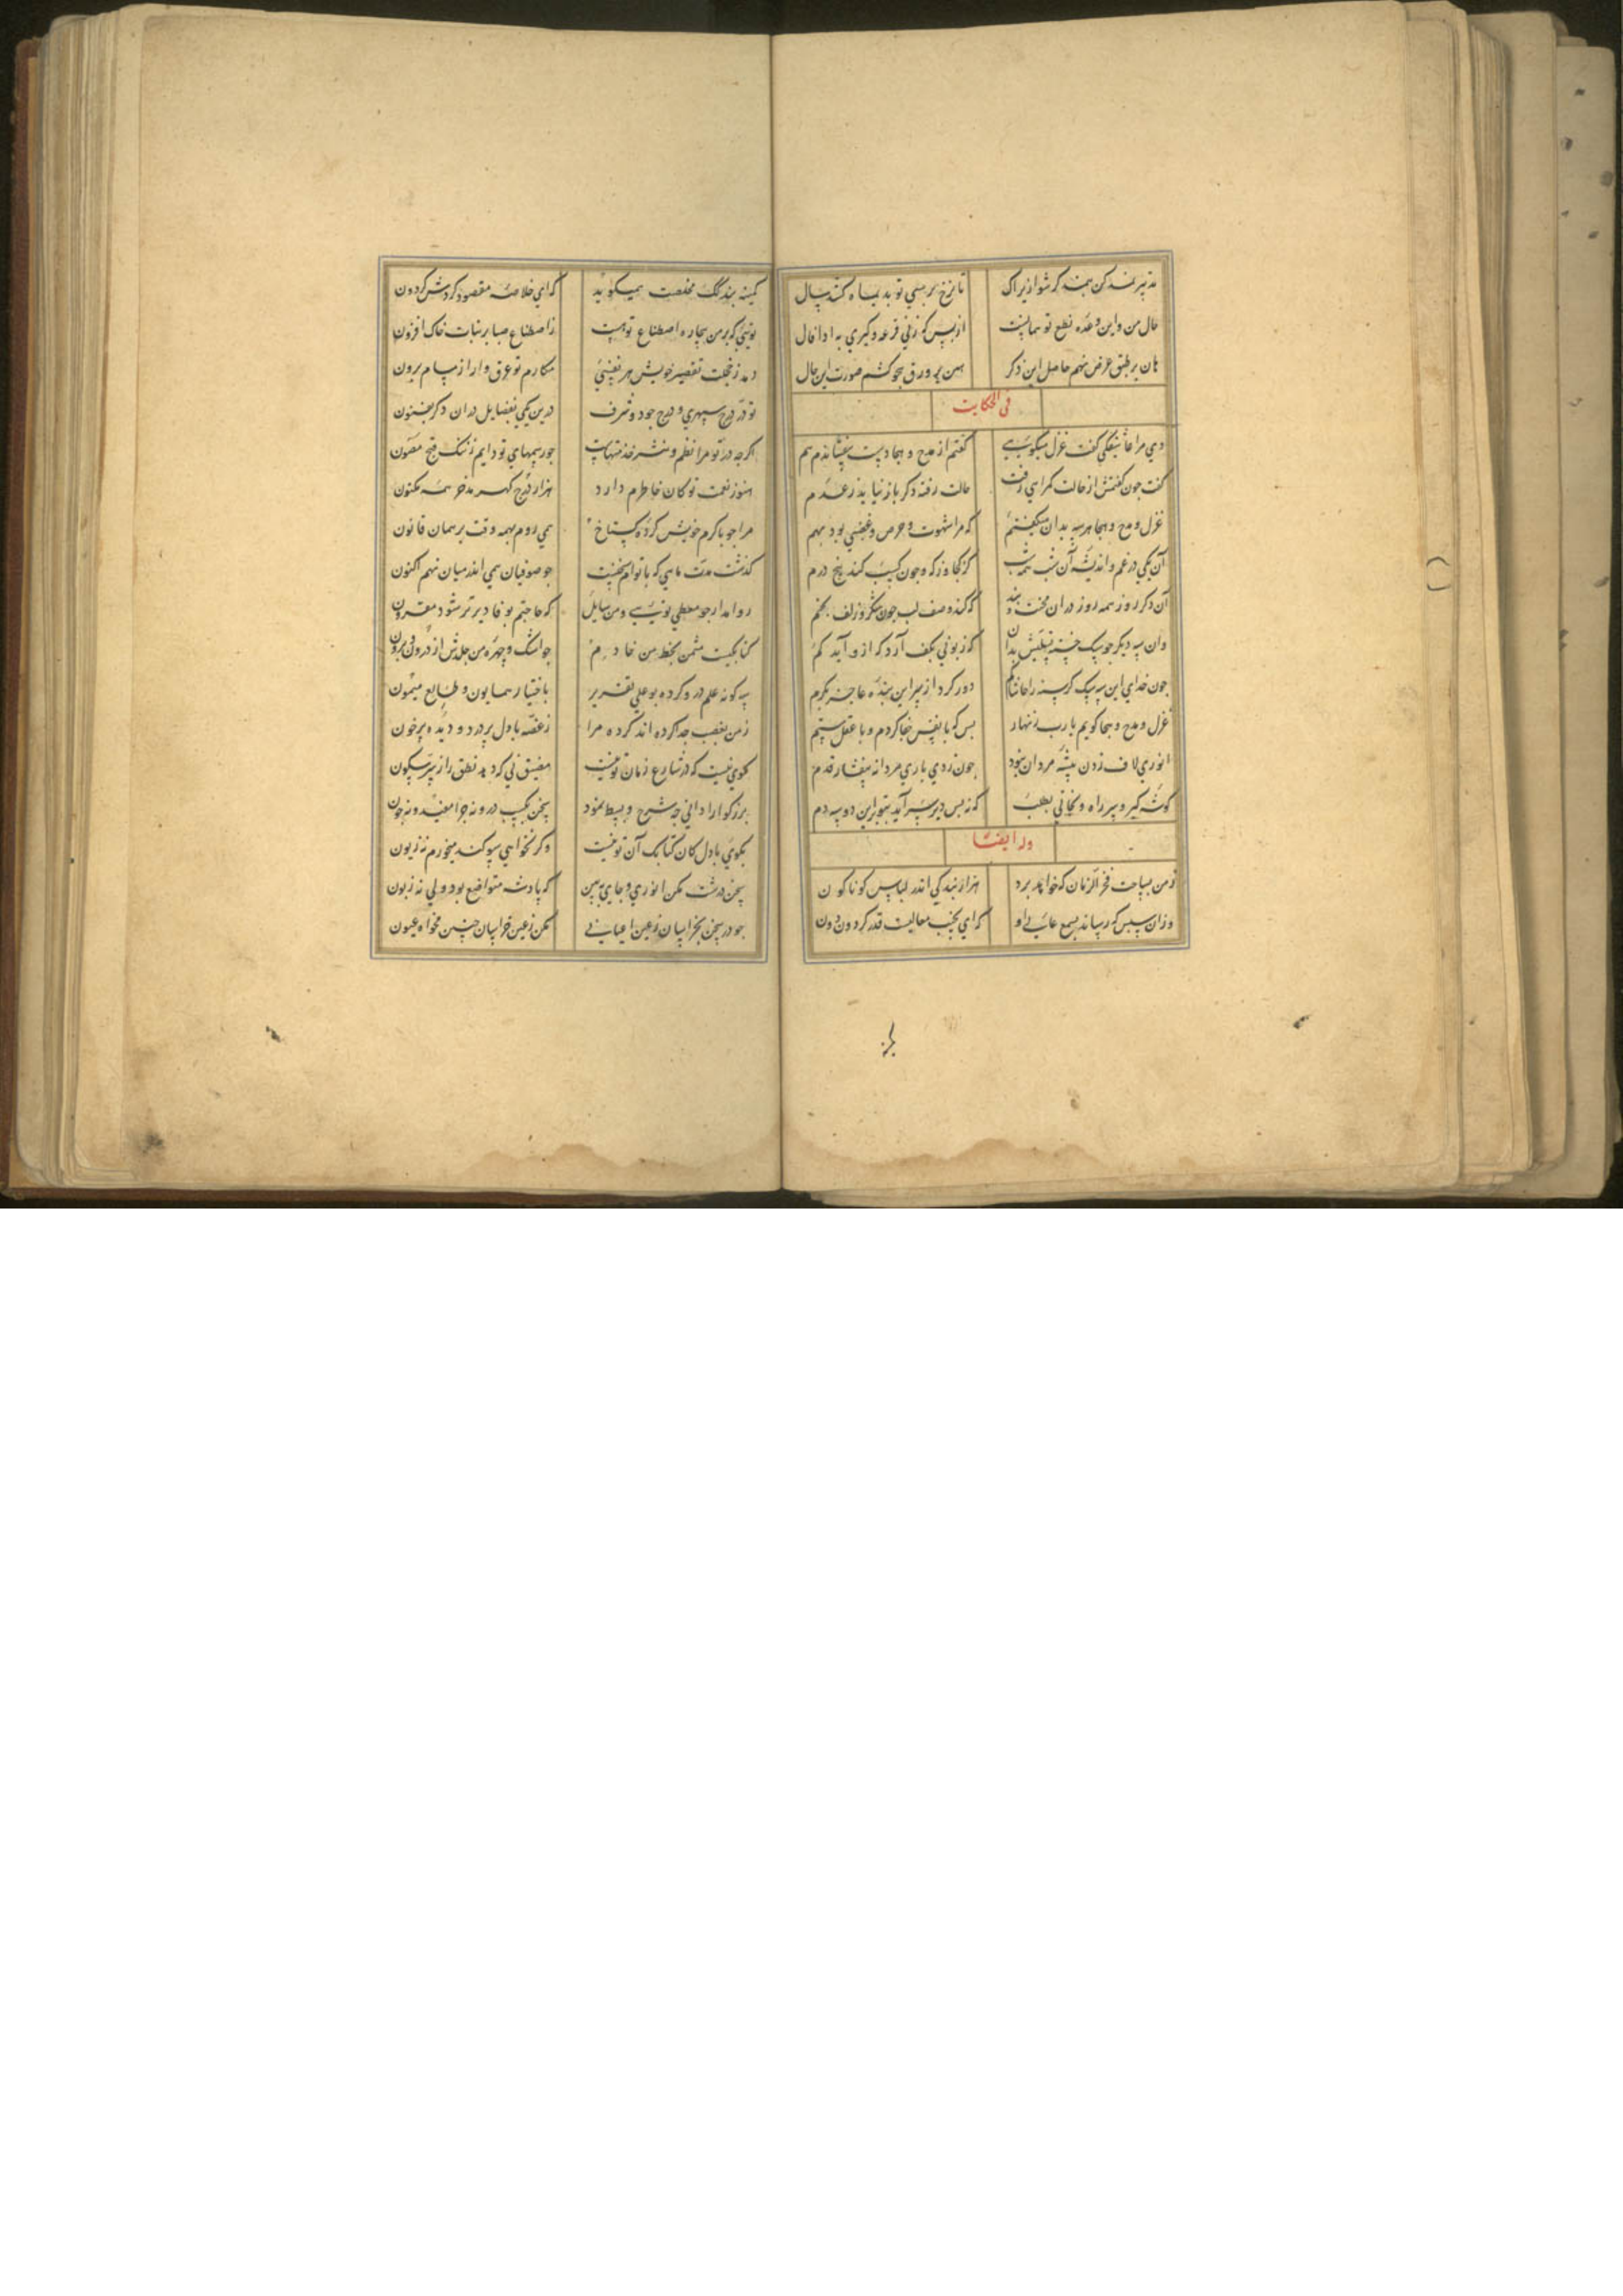 تدبیر نمد کن بنمد گر شو ازیراک تا نرخ بر سنی تو بدیماه کند سال
حال من و این وعده نطع تو همانست از بس که زنی قرعه و گیری به ادا فال
هان بر طبق عرض نهم حاصل این ذکر هین بر ورق هجو کشم صورت این حال
فی الحکایت
دی مرا عاشقکی گفت غزل میگویی گفتم از مدح و هجا دست بیفشاندم هم
گفت چون گفتمش از حالت گمراهی رفت حالت رفته دگر باز نیاید ز عدم
غزل و مدح و هجا هر سه بدان میگفتم که مرا شهوت و حرص و غضبی بود بهم
آن یکی در غم و اندیشه آن شب همه شب کز کجا وز که و چون کسب کند پنج درم
آن دگر روز همه روز در ان محنت و بند که کند وصف لب چون شکر و زلف بخم
وان سه دیگر چو سک خسته تسلیش بدان که زبونی بکف آرد که ازو آید کم
چون خدای این سه سک گرسنه را حاشاکم دور کرد از سر این بنده عاجز بکرم
غزل و مدح و هجا گویم یا رب زنهار بس که با نفس جفا کردم و با عقل ستم
انوری لاف زدن پیشه مردان نبود چون زدی باری مردانه بیفشار قدم
گوشه گیر و سر راه و نجاتی بطلب که نه بس دیر سر آید بتو بر این دو سه دم
وله ایضا
ز من بساحت فخر الزمان که خواهد برد هزار بندگی اندر لباس کوناکون
وزان سپس که رساند بسمع عالی او که ای بجنب معالیت قدر گردون دون
کمینه بندگک مخلصت همیگوید که ای خلاصه مقصود گردش گردون
تویی که بر من بیچاره اصطناع تو هست ز اصطناع صبا بر نبات خاک افزون
دمد ز خجلت تقصیر خویش هر نفسی مکارم تو عرق وار از مسام برون
تو در درج سپهری و درج جود و شرف درین یکی بفضایل در ان دگر بفنون
اگرچه در تو مرا نظم و نثر خدمتهاست چو رسمهای تو دایم ز ننگ قبح مصون
هنوز نعمت تو کان خاطرم دارد هزار درج گهر مدخر همه مکنون
مرا چو با کرم خویش کرده گستاخ همی روم بهمه وقت بر همان قانون
گذشت مدت ماهی که با توام سخنیست چو صوفیان همی اندر میان نهم اکنون
روا مدار چو معطی تویی و من سایل که حاجتم بوفا دیرتر شود مقرون
کتابکیست مثمن بخط من خادم چو اشک و چهره من جلدش از درون و برون
سه گونه علم در و کرده بوعلی تقریر باختیار همایون و طالع میمون
ز من بغصب جدا کرده اند کرده مرا ز غصه با دل پر درد و دیده پر خون
بگوی نیست که در شارع زمان تو نیست مضیق نی که دمد نطق را ز سر سکون
بزرگوارا دانی چه شرح و بسط نمود سخن بکسب در و نه چرا معینه و نه چون
بگوی با دل کان کتابک آن تو نیست و گر نخواهی سوگند میخورم نه زبون
سخن درشت مکن انوری و جای ببین که پادشه متواضع بود ولی نه زبون
چو در سخن بخراسیان ز عین اعیانی مکن ز عین خراسیان چنین مخواه عیون